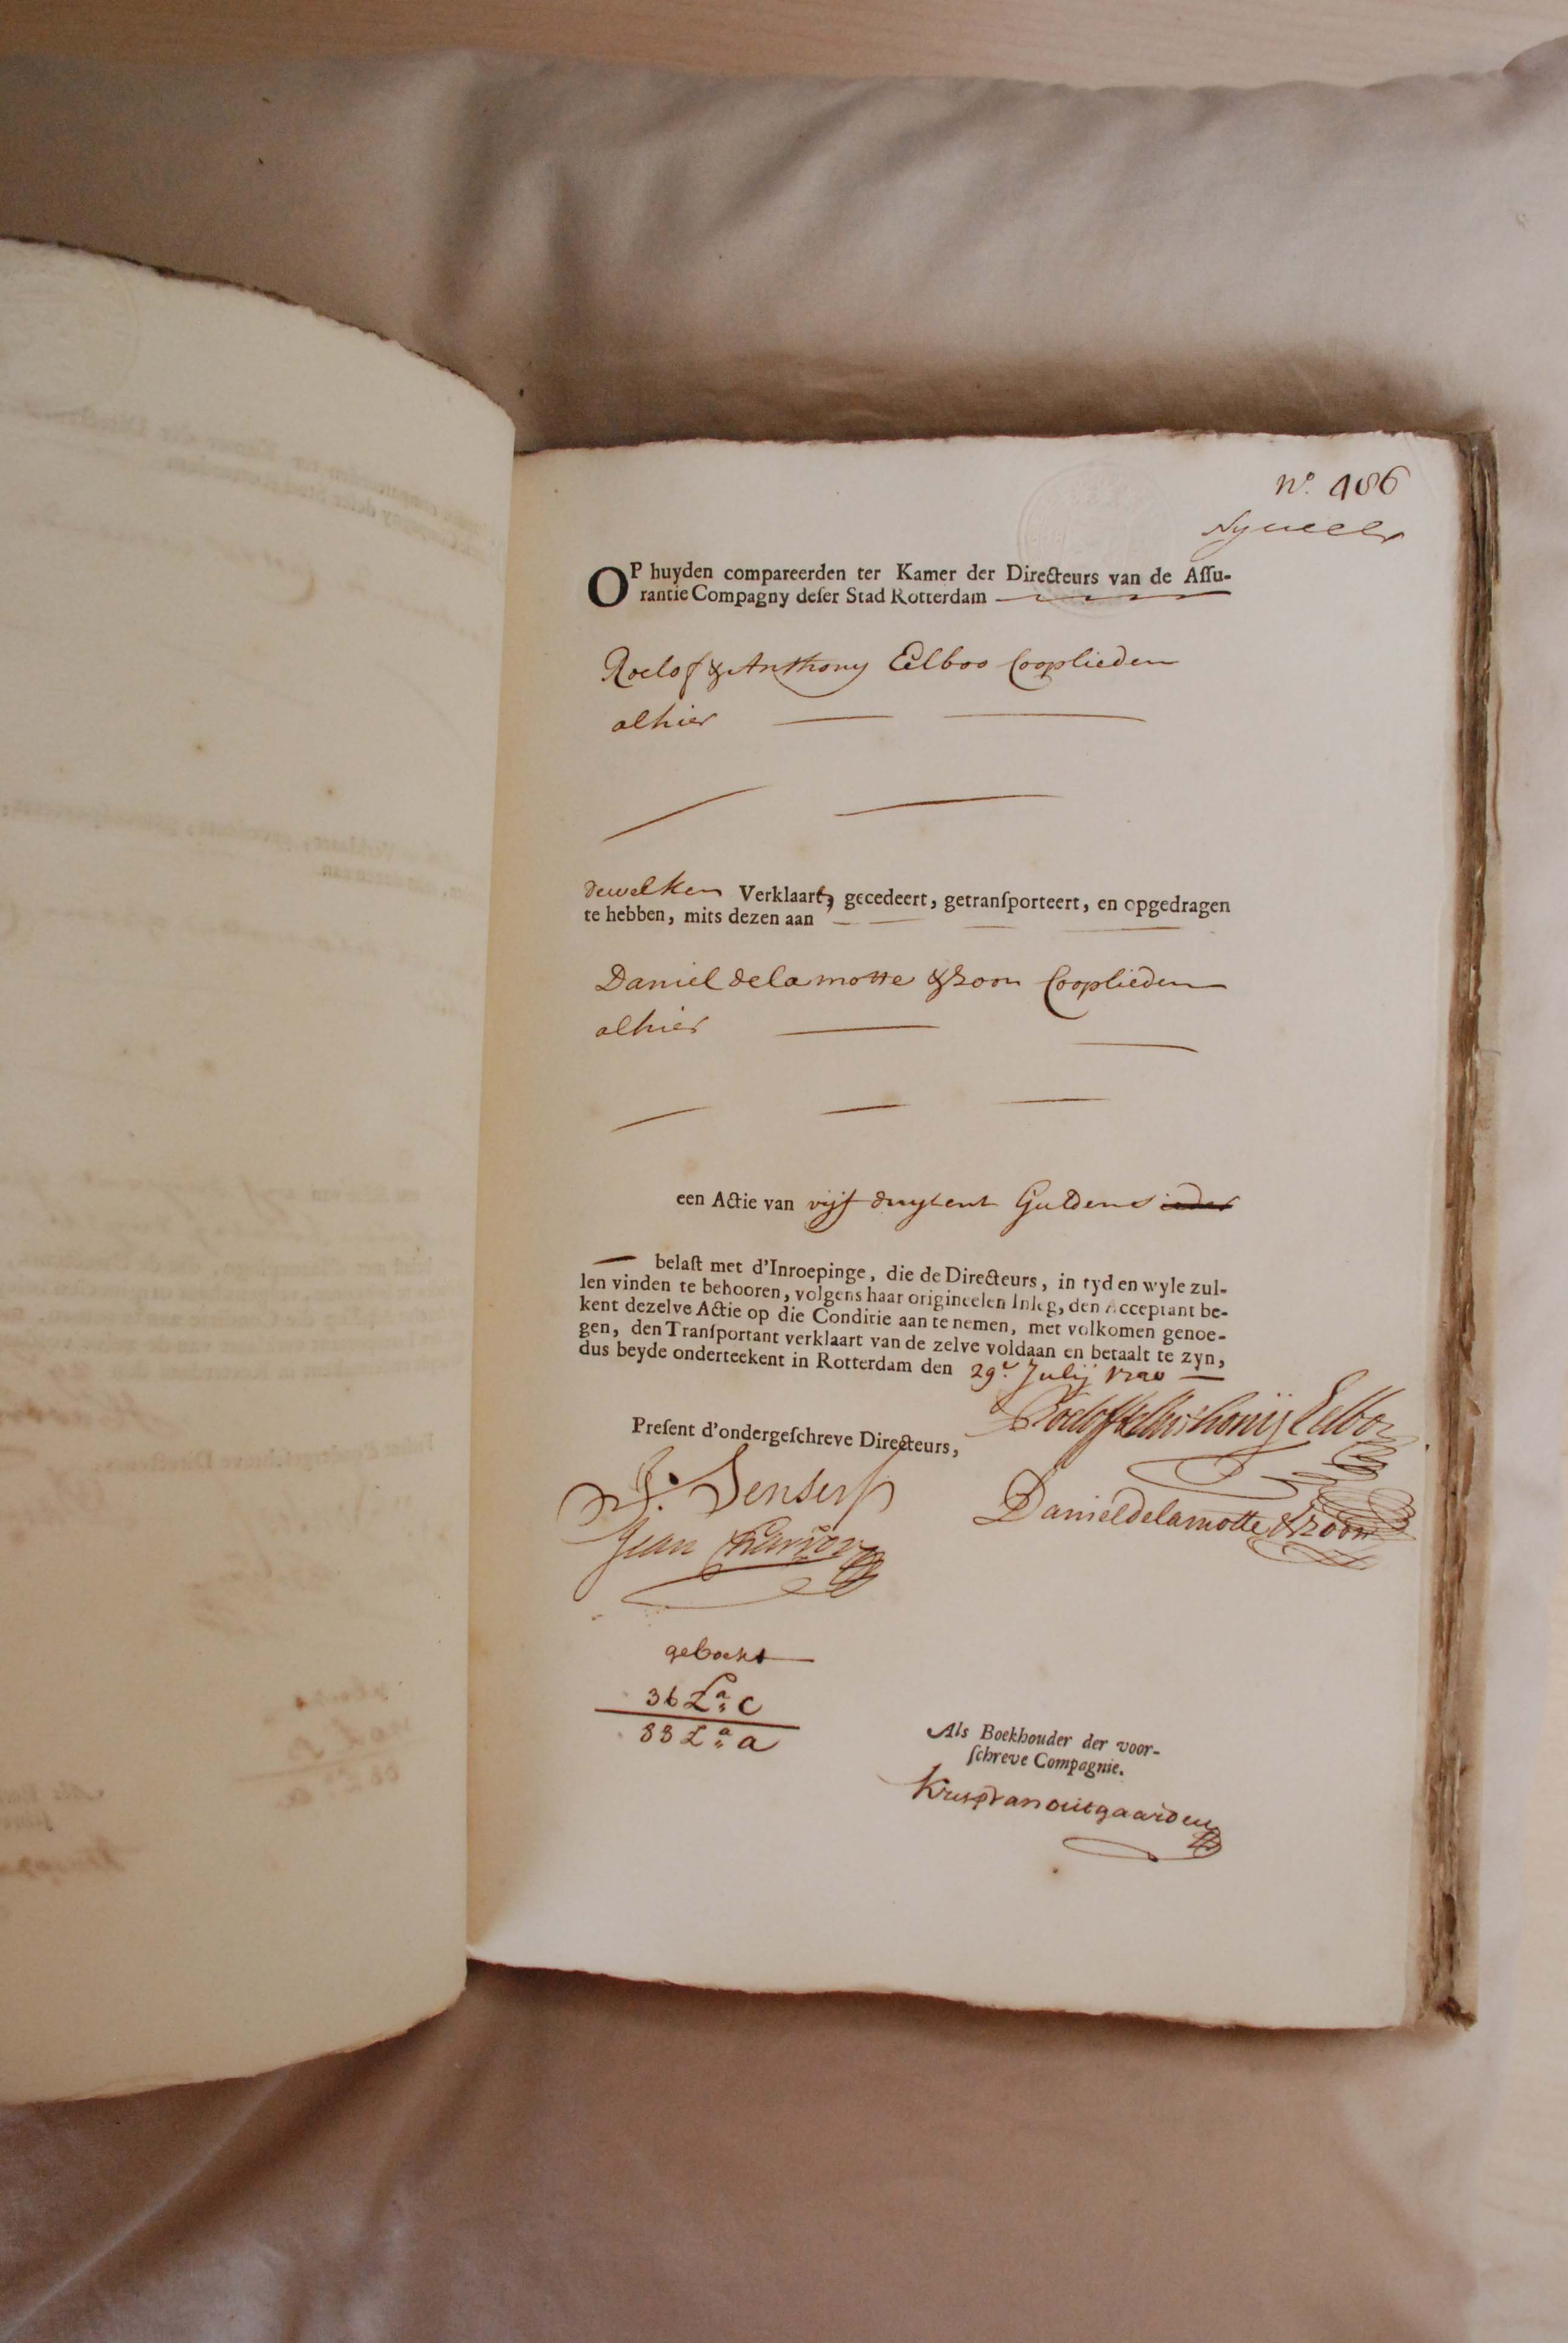 nº. 486
OP huyden compareerden ter Kamer der Directeurs van de Aſſu-
rantie Compagny deſer Stad Rotterdam
Roelof & Anthony Eelboo Cooplieden
alhier
dewelken Verklaart, gecedeert, getranſporteert, en opgedragen
te hebben, mits dezen aan
Daniel delamotte & zoon Cooplieden
alhier
een Actie van vijf duysent Guldens
belaſt met d'Inroepinge, die de Directeurs, in tyd en wyle zul-
len vinden te behooren, volgens haar origineelen Inleg, den Acceptant be-
kent dezelve Actie op die Conditie aan te nemen, met volkomen genoe-
gen, den Tranſportant verklaart van de zelve voldaan en betaalt te zyn,
dus beyde onderteekent in Rotterdam den 29e. Julij 1720
Preſent d'ondergeſchreve Directeurs,
Roelof & Anthonij Eelboo
Daniel delamotte & zoon
Jean
geboekt
36 La. C
88 La. a
Als Boekhouder der voor-
ſchreve Compagnie.